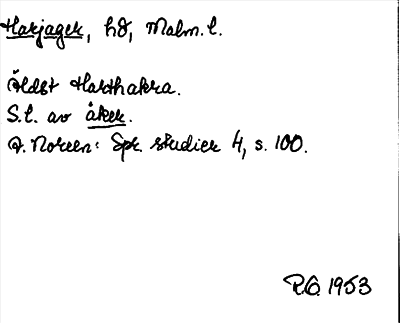 Harjager, hd, Malm. l.
Äldst Harthakra.
S.l. av åker.
A. Noreen: Spr. studier 4, s. 100.
P.Ö. 1953